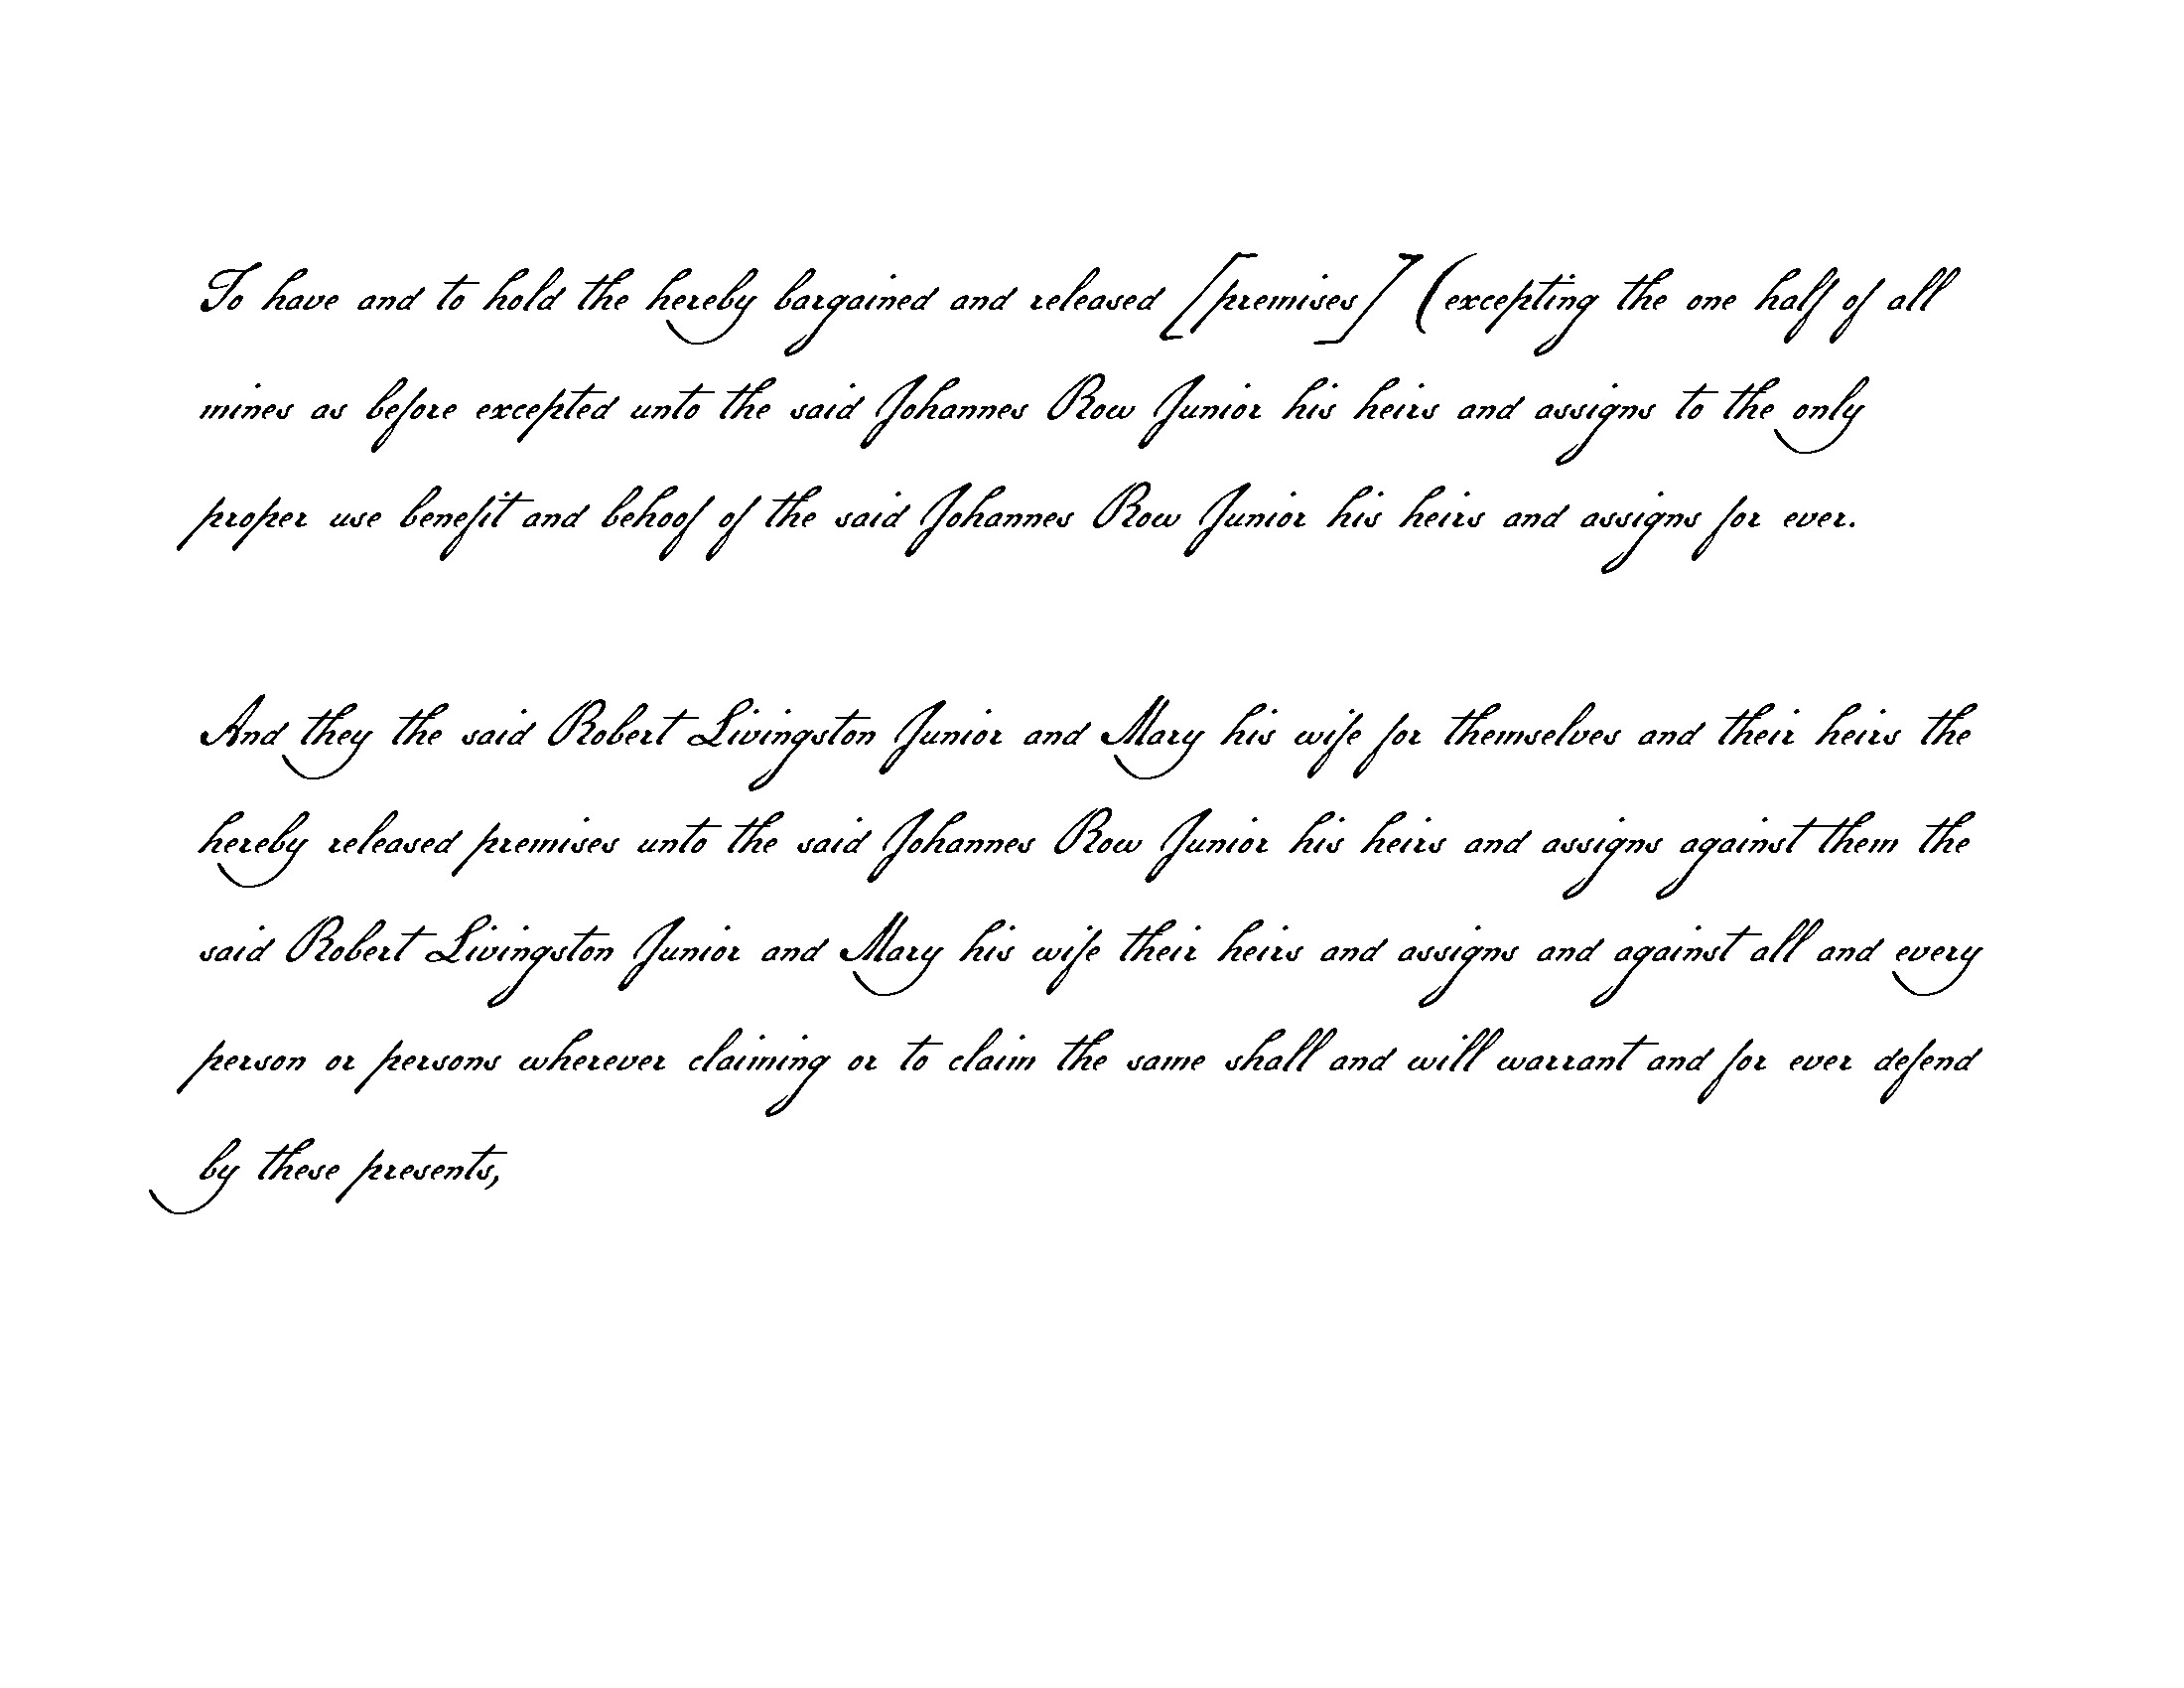 To have and to hold the hereby bargained and released [premises] (excepting the one half of all
mines as before excepted unto the said Johannes Row Junior his heirs and assigns to the only
proper use benefit and behoof of the said Johannes Row Junior his heirs and assigns for ever.
And they the said Robert Livingston Junior and Mary his wife for themselves and their heirs the
hereby released premises unto the said Johannes Row Junior his heirs and assigns against them the
said Robert Livingston Junior and Mary his wife their heirs and assigns and against all and every
person or persons wherever claiming or to claim the same shall and will warrant and for ever defend
by these presents,